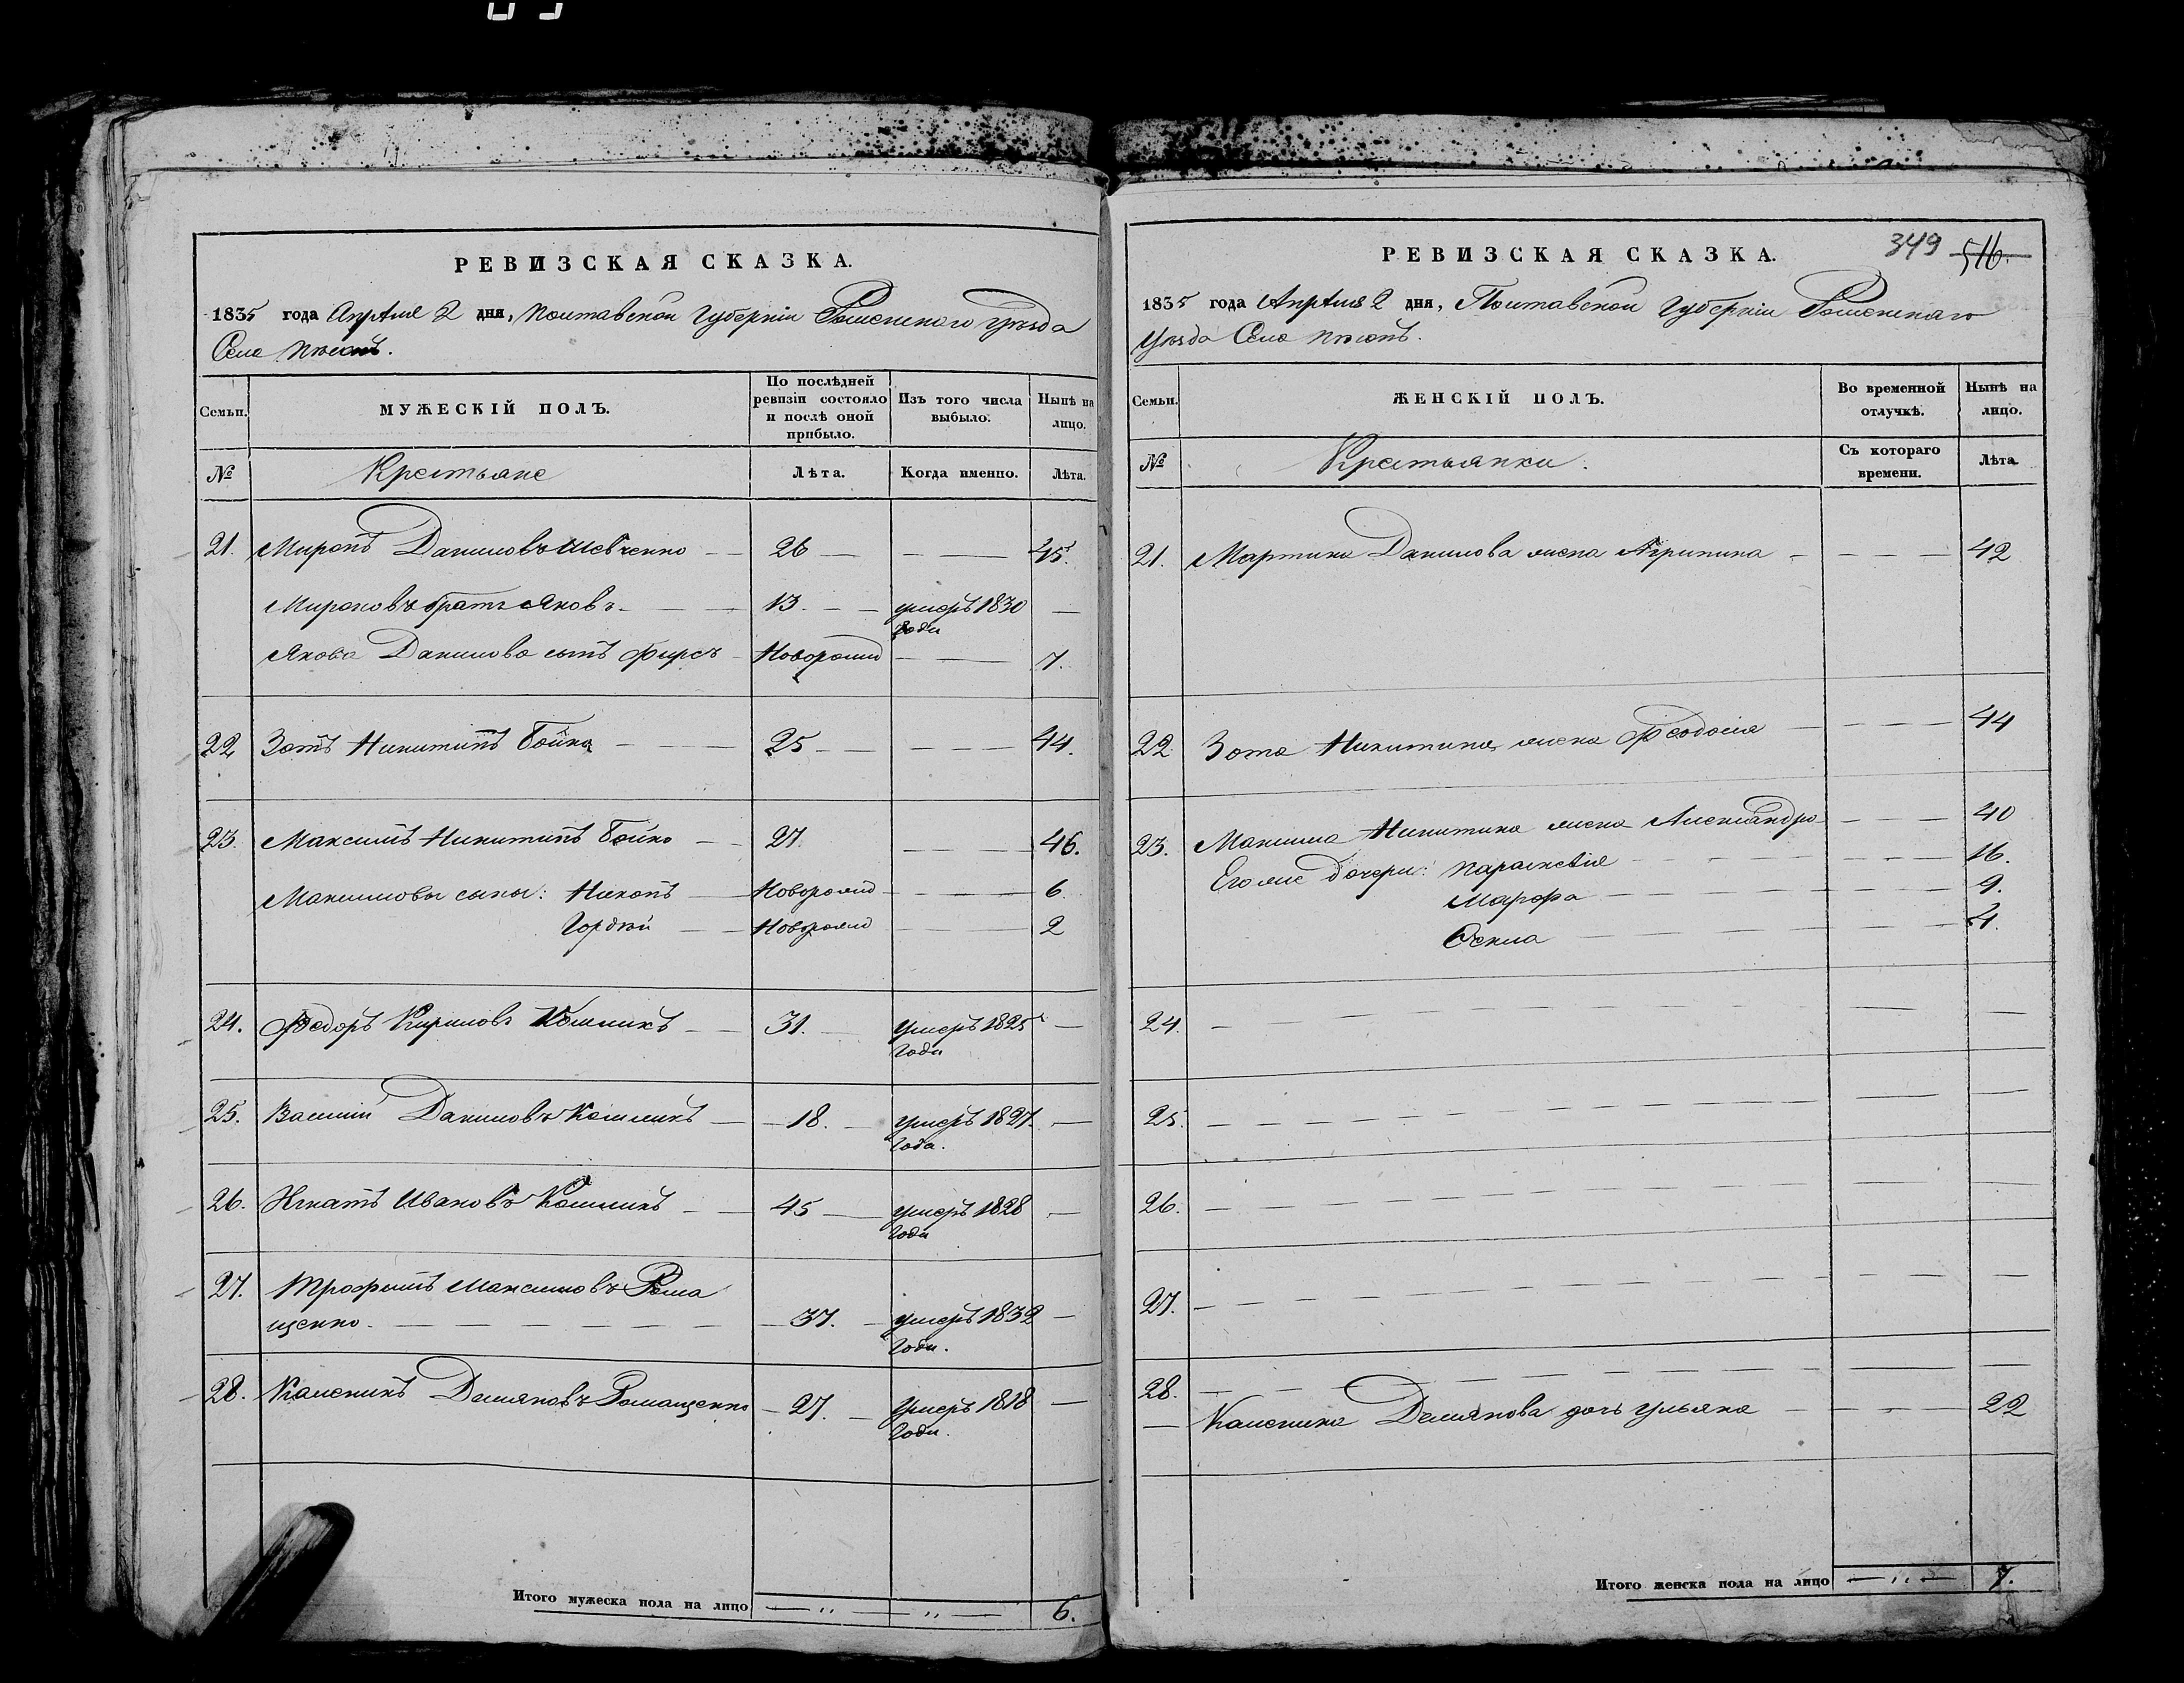 РЕВИЗСКАЯ СКАЗКА.
1835 года Апрѣля 2 дня, Полтавской Губерніи Роменскаго уѣзда
Села
Семьи.
МУЖЕСКІЙ ПОЛЪ.
По послѣдней ревизіи состояло и послѣ оной прибыло.
Изъ того числа выбыло.
Нынѣ на лицо.
№
Крестьяне
Лѣта.
Когда именно.
Лѣта.
21. Миронъ Даниловъ Шевченко — 26 — — — 45.
Мироновъ братъ Яковъ. — 13. — умеръ 1830 —
года
Якова Данилова сынъ Фирсъ — Новорожд — — 7.
22 Зотъ Никитинъ Бойко — 25 — — — 44.
23. Максимъ Никитинъ Бойко — 27. — — 46.
Максимовы сыны: Никонъ — Новорожд — — 6.
Гордѣй — Новорожд — — 2
24. Федоръ Кириловъ Кошликъ — 31. — Умеръ 1825 —
года
25. Василій Даниловъ — 18. — умеръ 1827. —
года.
26. Игнатъ Ивановъ — 45 — умеръ 1828 —
года
27. Трофимъ Максимовъ Рома
щенко. — 37. — умеръ 1832 —
года.
28. Калѣникъ Демяновъ Ромащенко — 27. — Умеръ 1818 —
года.
Итого мужеска пола на лицо — „ — „ — 6.
РЕВИЗСКАЯ СКАЗКА.
349 516.
1835 года Апрѣля 2 дня, Полтавской Губерніи Роменскаго
Уѣзда Села
Семьи.
ЖЕНСКІЙ ПОЛЪ.
Во временной отлучкѣ.
Нынѣ на лицо.
№
Крестьянки.
Съ котораго времени.
Лѣта
21. Данилова жена Агрипина — — — 42
22 Зота Никитина жена Феодосія — — — 44
23. Максима Никитина жена Александра — — — 40
Его же дочери: Параскевія — — — 16.
Марфа — — — 9.
— — — 4.
24. — — —
25. — — —
26. — — —
27. — — —
28. — — —
— Каленика Демянова дочь Ульяна — — — 22
Итого женска пола на лицо — „ — 7.